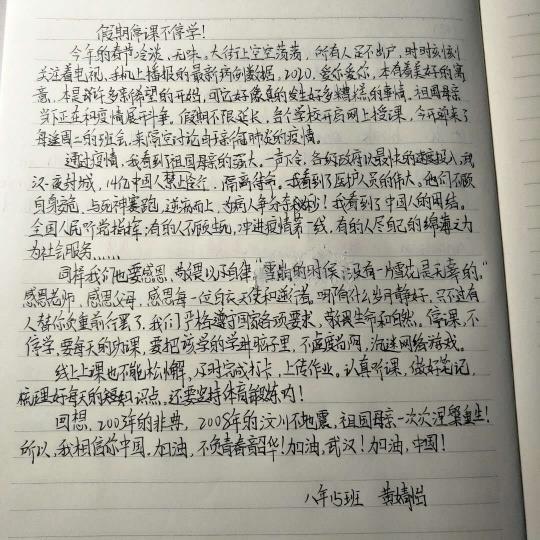 假期停课不停学!
今年的春节冷淡、无味。大街上空空荡荡，所有人足不出户，时时刻刻
关注着电视、手机上播报的最新病例数据，2020，爱你爱你，本有着美好的寓
意，本是许许多亲希望的开始，可它好像真的发生好多糟糕的事情。祖国母亲
当下正在和疫情展开斗争，假期不限延长，各个学校开启网上授课，今天迎来了
每逢周二的班会，来隔空讨论由于新冠肺炎的疫情。
通过疫情，我看到祖国母亲的强大。一声令下，各级政府以最快的速度投入，武
汉一夜封城，14亿中国人禁止出行，隔离待命。我看到了医护人员的伟大。他们不顾
自身安危，与死神赛跑，逆病而上，为病人争分夺秒！我看到了中国人的团结。
全国人民听党指挥；有的人不顾生死，冲进疫情第一线，有的人尽自己的绵薄之力
为社会服务……
同样我们也要感恩、敬畏以及自律，"雪崩的时候，没有一片雪花是无辜的。"
感恩老师，感恩父母，感恩每一位白衣天使和逆行者，哪有什么岁月静好，只不过有
人替你负重前行罢了，我们严格遵守国家各项要求，敬畏生命和自然。停课，不
停学，要每天的功课，要把该学的学进脑子里，不过度上网，沉迷网络游戏。
线上上课也不能松懈，及时完成打卡，上传作业。认真听课，做好笔记，
梳理好每天的知识点，还要坚持体育锻炼哟！
回想，2003年的非典，2008年的汶川大地震，祖国母亲一次次涅槃重生！
所以，我相信你中国。加油，不负青春韶华！加油，武汉！加油，中国！
八年15班 黄婧怡